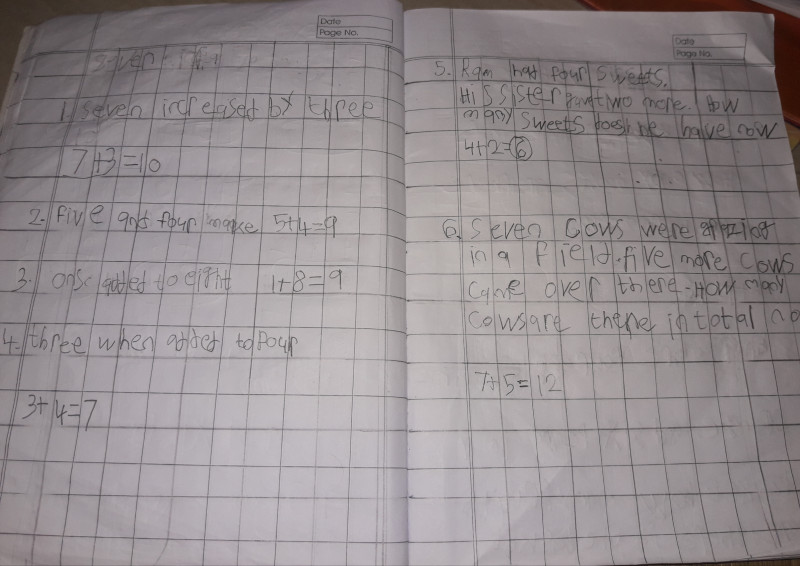 Date
Page No.
1. seven increased by three
7+3=10
2. five and four make 5+4=9
3. one added to eight 1+8=9
4. three when added to four
3+4=7
Date
Page No.
5. Ram had four sweets.
His sister gave two more. How
many sweets does he have now
4+2=6
6. Seven cows were
in a field. five more cows
came over there. How many
cows are there in total no
7+5=12